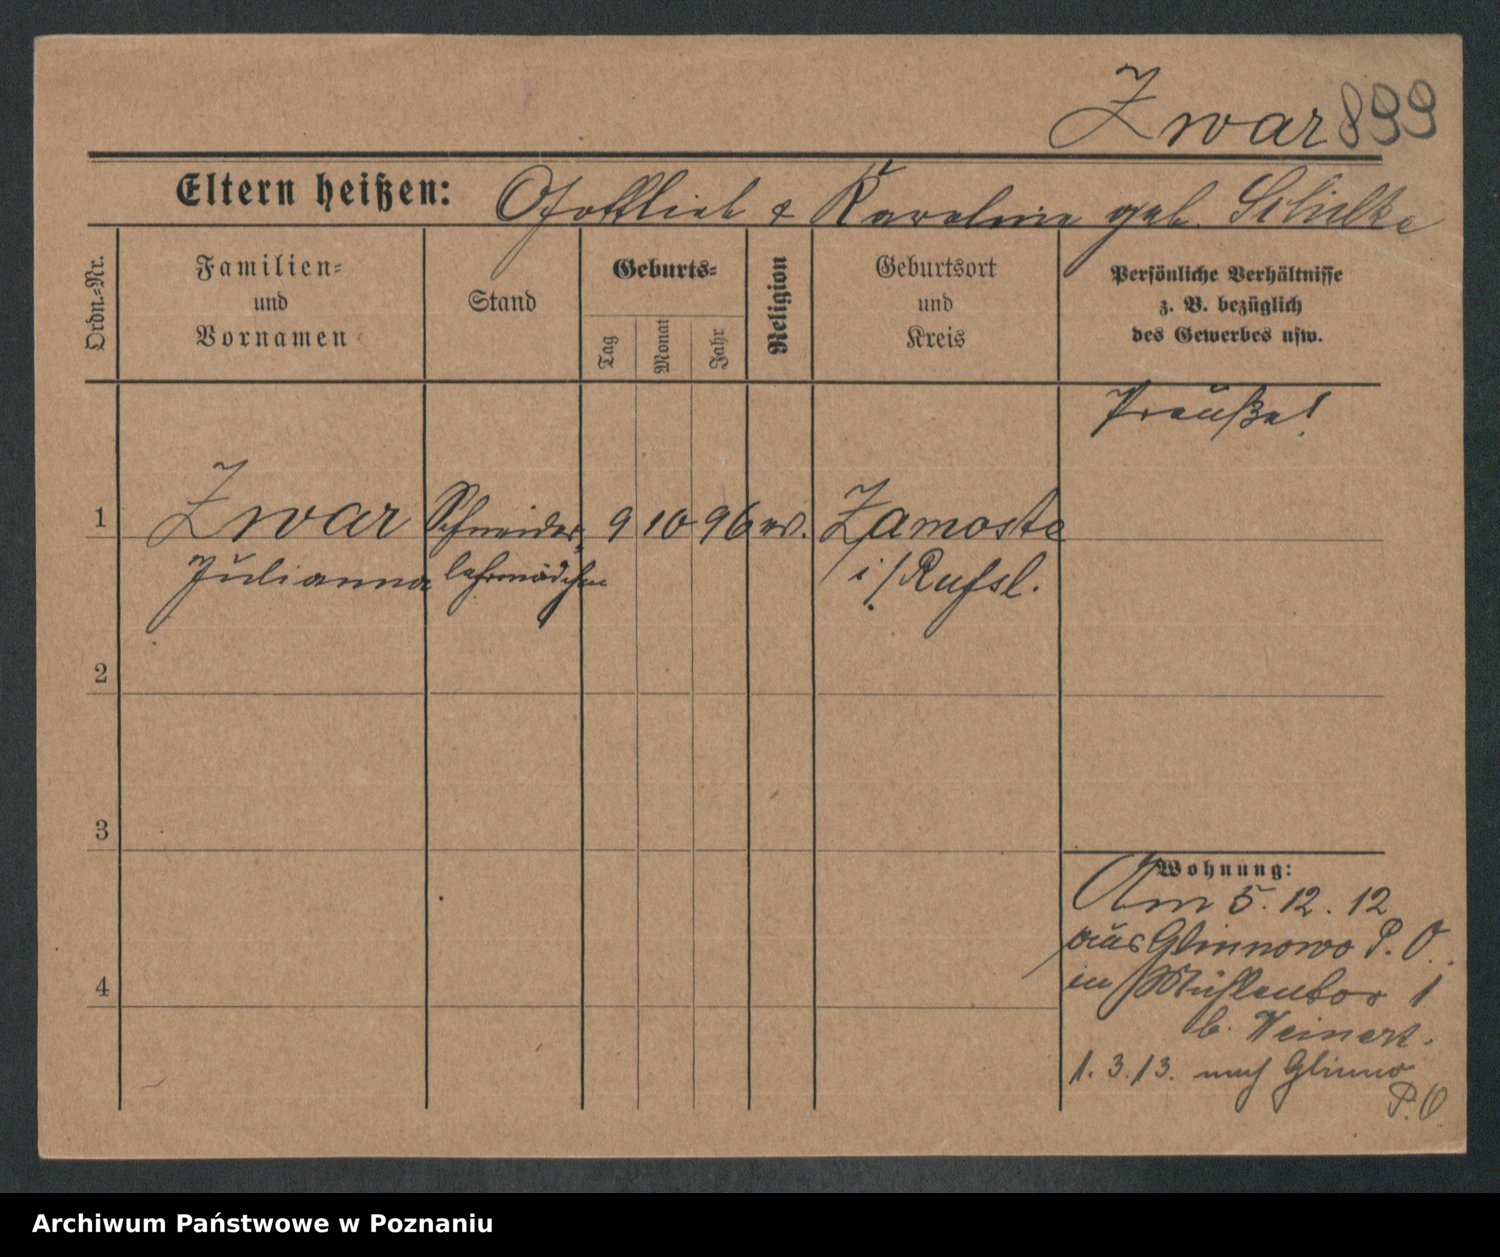 Zwar 899
Eltern heißen: Gottlieb & Karoline geb. Schielke
Ordn.-Nr.
Familien-
und
Vornamen
Stand
Geburts-
Tag
Monat
Jahr
Religion
Geburtsort
und
Kreis
Persönliche Verhältnisse
z. B. bezüglich
des Gewerbes usw.
Preuße!
1 Zwar Schneider- 9 10 96 ev. Zamoste
Julianna lehrmädchen i/Rußl.
2
3
4
Wohnung:
Am 5. 12. 12
aus Glinnowo P. O.
in Mühlentor 1
b. Weinert.
1. 3. 13. nach Glinno
P. O.
Archiwum Państwowe w Poznaniu